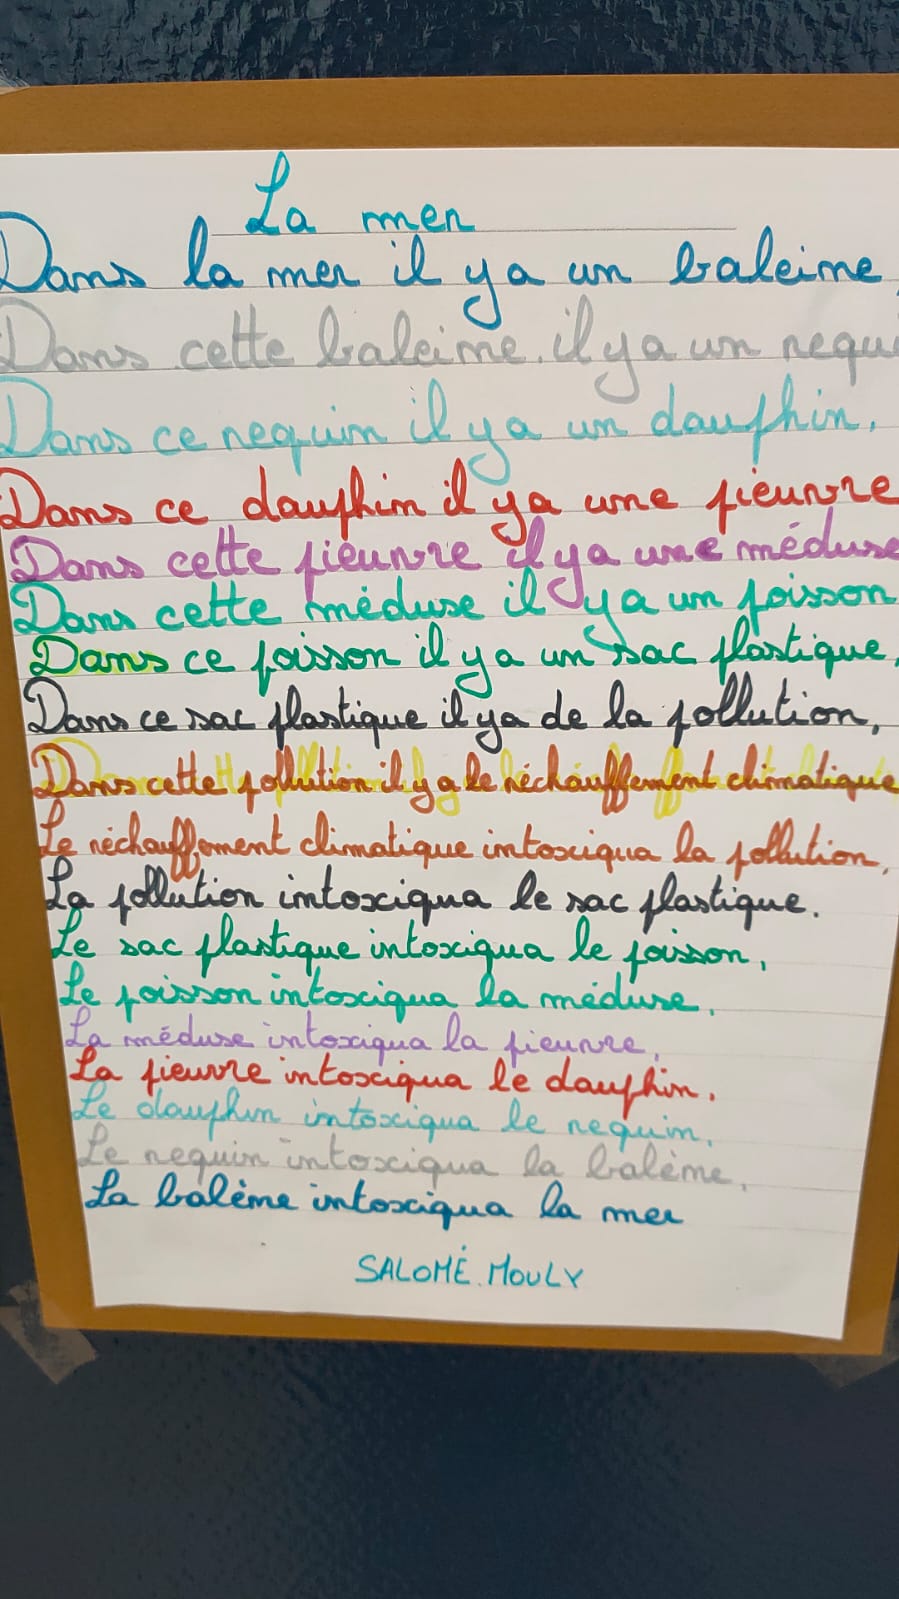 La mer
Dans la mer il y a un baleine,
Dans cette baleine il y a un requi
Dans ce requin il y a un dauphin,
Dans ce dauphin il y a une pieuvre
Dans cette pieuvre il y a une méduse
Dans cette méduse il y a un poisson
Dans ce poisson il y a un sac plastique,
Dans ce sac plastique il y a de la pollution,
Dans cette pollution il y a le réchauffement climatique
Le réchauffement climatique intoxiqua la pollution,
La pollution intoxiqua le sac plastique.
Le sac plastique intoxiqua le poisson,
Le poisson intoxiqua la méduse,
La méduse intoxiqua la pieuvre,
La pieuvre intoxiqua le dauphin,
Le dauphin intoxiqua le requin,
Le requin intoxiqua la balème,
La balème intoxiqua la mer
SALOMÉ.MOULY